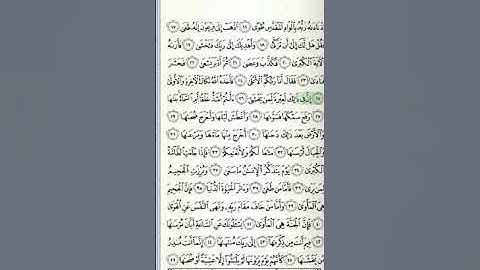 إِذْ نَادَىٰهُ رَبُّهُۥ بِٱلْوَادِ ٱلْمُقَدَّسِ طُوًى ١٦ ٱذْهَبْ إِلَىٰ فِرْعَوْنَ إِنَّهُۥ طَغَىٰ ١٧
فَقُلْ هَل لَّكَ إِلَىٰٓ أَن تَزَكَّىٰ ١٨ وَأَهْدِيَكَ إِلَىٰ رَبِّكَ فَتَخْشَىٰ ١٩ فَأَرَىٰهُ
ٱلْءَايَةَ ٱلْكُبْرَىٰ ٢٠ فَكَذَّبَ وَعَصَىٰ ٢١ ثُمَّ أَدْبَرَ يَسْعَىٰ ٢٢ فَحَشَرَ
فَنَادَىٰ ٢٣ فَقَالَ أَنَا۠ رَبُّكُمُ ٱلْأَعْلَىٰ ٢٤ فَأَخَذَهُ ٱللَّهُ نَكَالَ ٱلْءَاخِرَةِ وَٱلْأُولَىٰٓ
٢٥ إِنَّ فِى ذَٰلِكَ لَعِبْرَةً لِّمَن يَخْشَىٰٓ ٢٦ ءَأَنتُمْ أَشَدُّ خَلْقًا أَمِ ٱلسَّمَآءُ بَنَىٰهَا
٢٧ رَفَعَ سَمْكَهَا فَسَوَّىٰهَا ٢٨ وَأَغْطَشَ لَيْلَهَا وَأَخْرَجَ ضُحَىٰهَا ٢٩
وَٱلْأَرْضَ بَعْدَ ذَٰلِكَ دَحَىٰهَآ ٣٠ أَخْرَجَ مِنْهَا مَآءَهَا وَمَرْعَىٰهَا ٣١
وَٱلْجِبَالَ أَرْسَىٰهَا ٣٢ مَتَٰعًا لَّكُمْ وَلِأَنْعَٰمِكُمْ ٣٣ فَإِذَا جَآءَتِ ٱلطَّآمَّةُ
ٱلْكُبْرَىٰ ٣٤ يَوْمَ يَتَذَكَّرُ ٱلْإِنسَٰنُ مَا سَعَىٰ ٣٥ وَبُرِّزَتِ ٱلْجَحِيمُ
لِمَن يَرَىٰ ٣٦ فَأَمَّا مَن طَغَىٰ ٣٧ وَءَاثَرَ ٱلْحَيَوٰةَ ٱلدُّنْيَا ٣٨ فَإِنَّ ٱلْجَحِيمَ
هِىَ ٱلْمَأْوَىٰ ٣٩ وَأَمَّا مَنْ خَافَ مَقَامَ رَبِّهِۦ وَنَهَى ٱلنَّفْسَ عَنِ ٱلْهَوَىٰ
٤٠ فَإِنَّ ٱلْجَنَّةَ هِىَ ٱلْمَأْوَىٰ ٤١ يَسْـَٔلُونَكَ عَنِ ٱلسَّاعَةِ أَيَّانَ مُرْسَىٰهَا
٤٢ فِيمَ أَنتَ مِن ذِكْرَىٰهَآ ٤٣ إِلَىٰ رَبِّكَ مُنتَهَىٰهَآ ٤٤ إِنَّمَآ أَنتَ مُنذِرُ
مَن يَخْشَىٰهَا ٤٥ كَأَنَّهُمْ يَوْمَ يَرَوْنَهَا لَمْ يَلْبَثُوٓا۟ إِلَّا عَشِيَّةً أَوْ ضُحَىٰهَا ٤٦